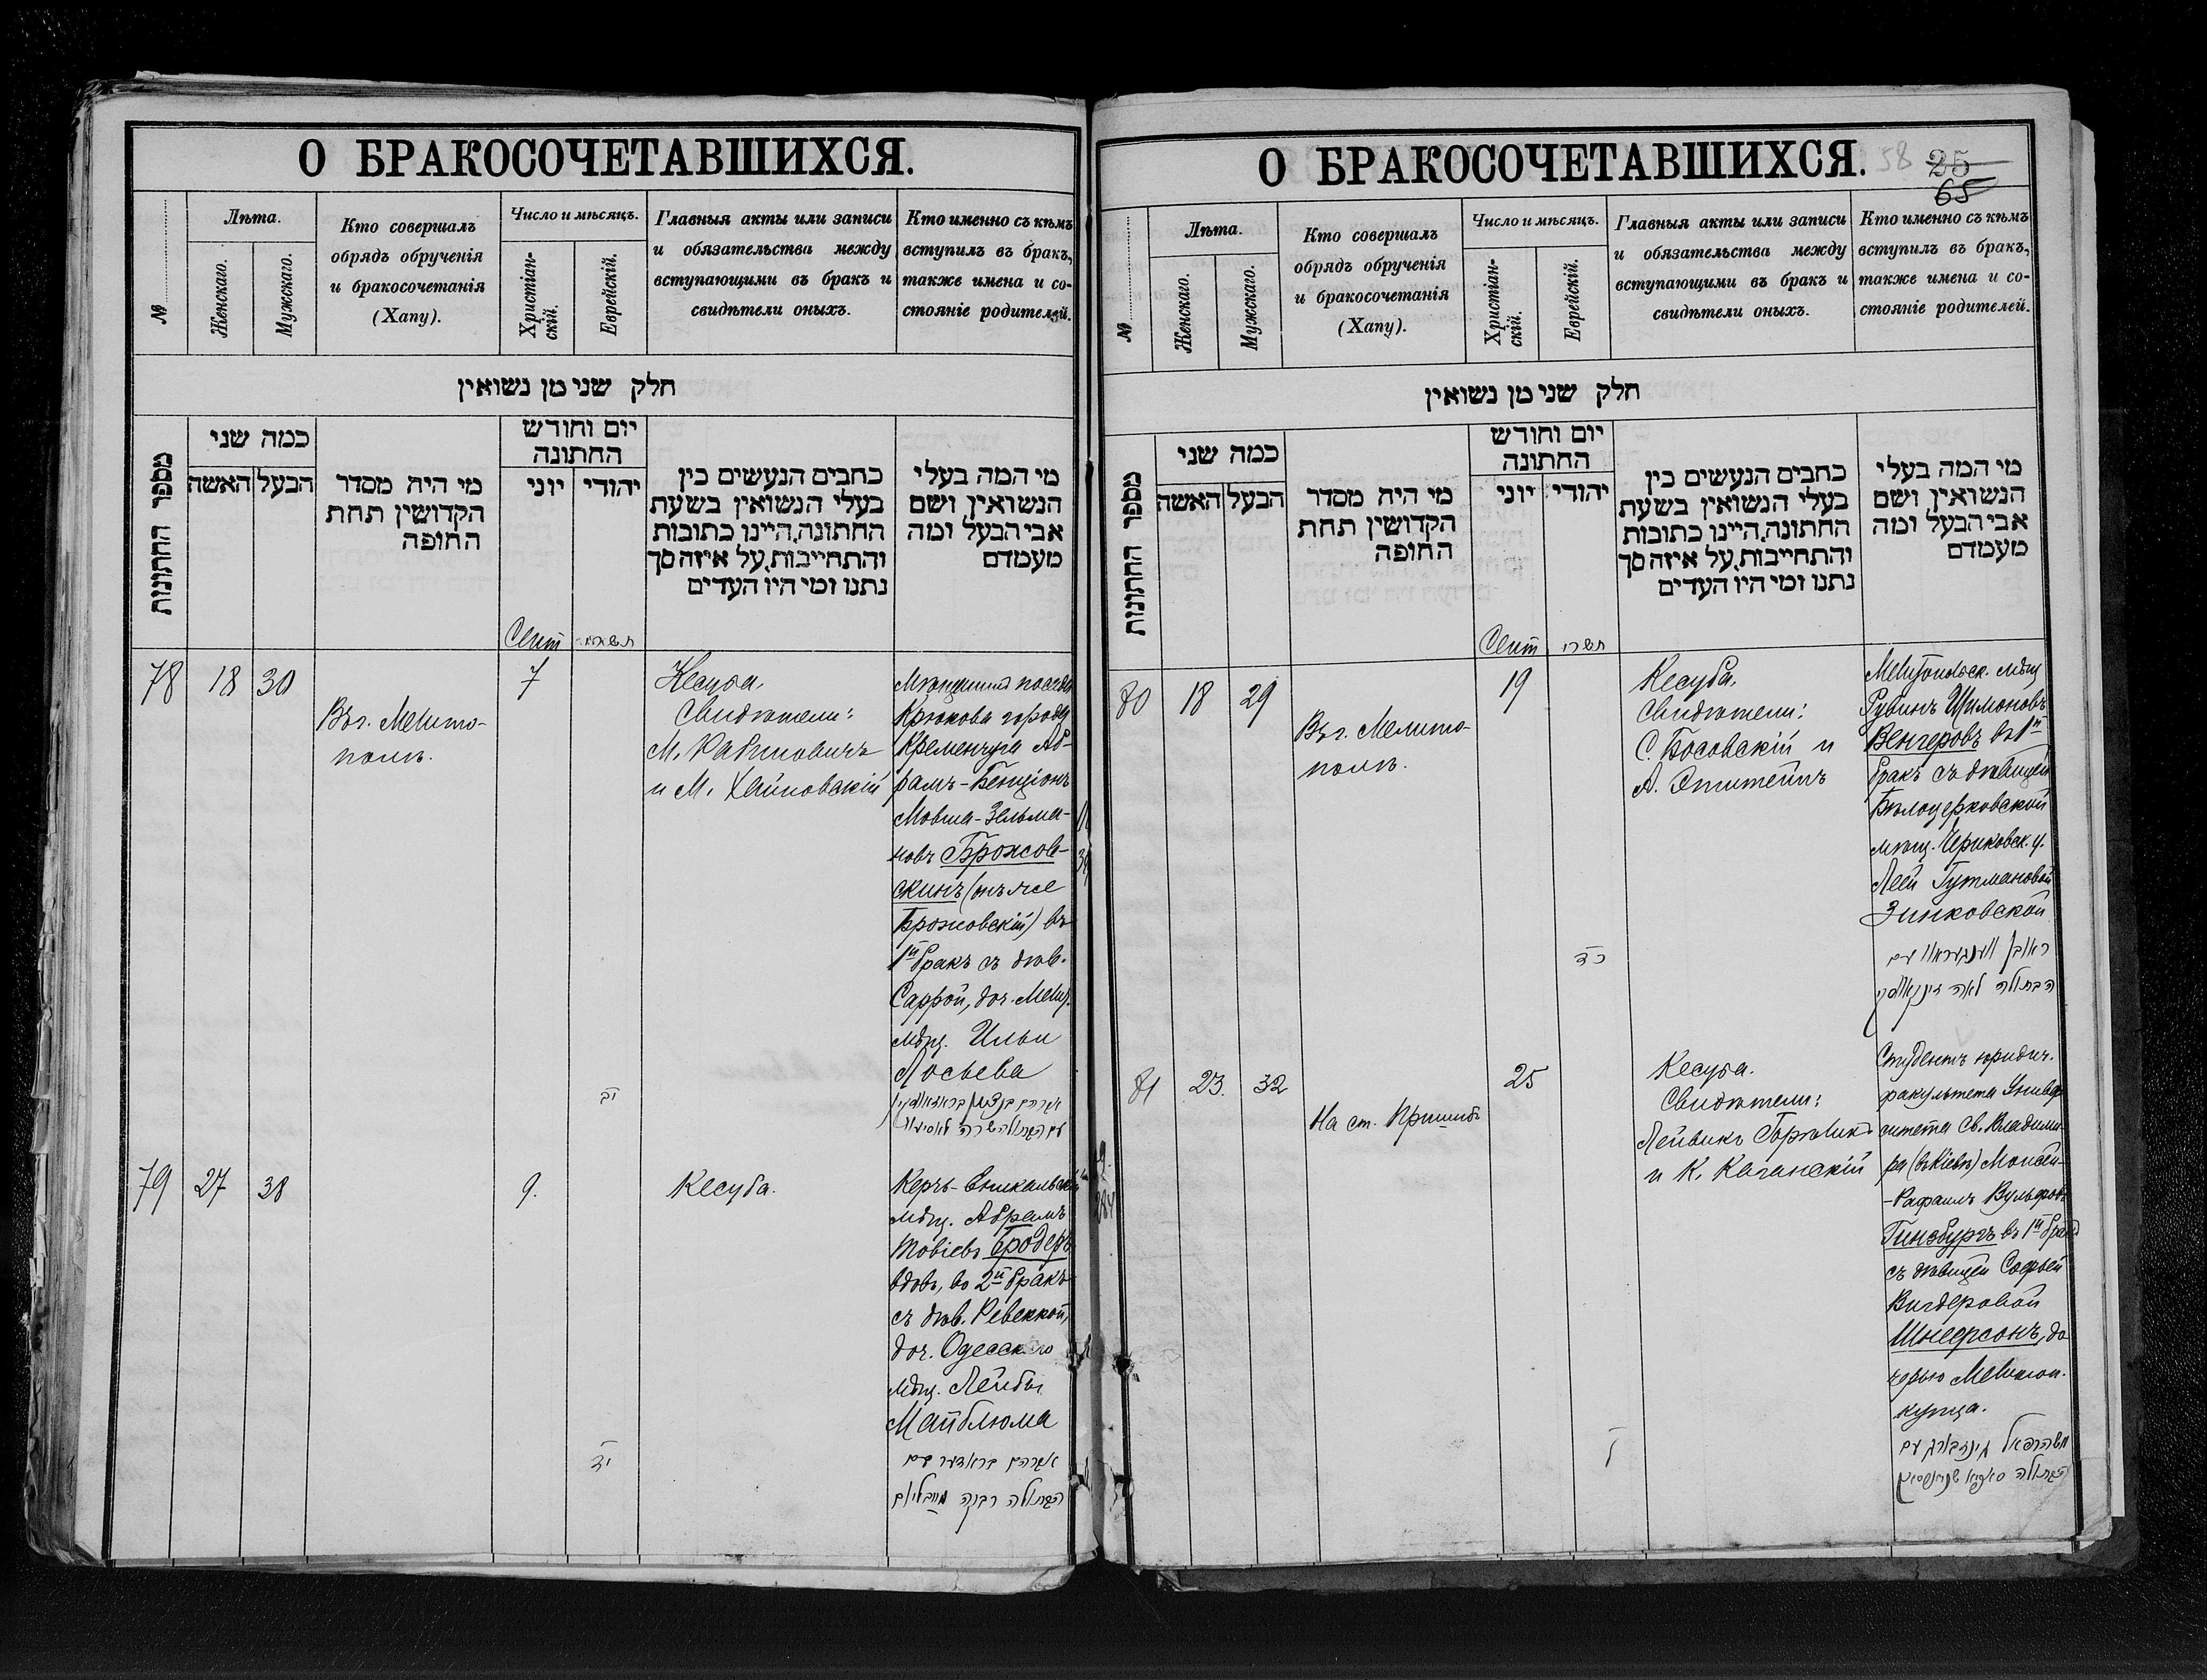 О БРАКОСОЧЕТАВШИХСЯ.
№
Лѣта.
Женскаго.
Мужскаго.
Кто совершалъ
обрядъ обрученія
и бракосочетанія
(Хапу).
Число и мѣсяцъ.
Христіан-
скій.
Еврейскій.
Главныя акты или записи
и обязательства между
вступающими въ бракъ и
свидѣтели оныхъ.
Кто именно съ кѣмъ
вступилъ въ бракъ,
также имена и со-
стояніе родителей.
חלק שני מן נשואין
מספר החתונות
כמה שני
האשה
הבעל
מי היה מסדר
הקדושין תחת
החופה
יום וחודש
החתונה
יוני
יהודי
כתבים הנעשים בין
בעלי הנשואין בשעת
החתונה, היינו כתובות
והתחייבות, על איזה סך
נתנו ומי היו העדים
מי המה בעלי
הנשואין ושם
אבי הבעל ומה
מעמדם
Сент
תשרי
78
18
30
Въ г. Мелито-
полѣ.
7
יב
Кесуба.
Свидѣтели:
М. Рабиновичъ
и М. Хайновскій
Мѣщанинъ посада
Крюкова города
Кременчуга Аб-
рамъ-Бенціонъ
Мовша-Зельма-
новъ Брожов-
скинъ (онъ же
Брожовскій) въ
1й бракъ съ дѣв.
Саррой, доч. Мелит.
мѣщ. Ильи
Лосьева
אברהם בנציון
עם הבתולה שרה
79
27
38
9.
יד
Кесуба.
Керчь-Еникальскій
мѣщ. Абрамъ
Товіевъ Бродеръ
вдов, во 2й бракъ
съ дѣв. Ревеккой,
доч. Одесскаго
мѣщ. Лейбы
Майблюма
אברהם בראדער עם
הבתולה רבקה מייבליום
О БРАКОСОЧЕТАВШИХСЯ.
58
25
65
№
Лѣта.
Женскаго.
Мужскаго.
Кто совершалъ
обрядъ обрученія
и бракосочетанія
(Хапу).
Число и мѣсяцъ.
Христіан-
скій.
Еврейскій.
Главныя акты или записи
и обязательства между
вступающими въ бракъ и
свидѣтели оныхъ.
Кто именно съ кѣмъ
вступилъ въ бракъ,
также имена и со-
стояніе родителей.
חלק שני מן נשואין
מספר החתונות
כמה שני
האשה
הבעל
מי היה מסדר
הקדושין תחת
החופה
יום וחודש
החתונה
יוני
יהודי
כתבים הנעשים בין
בעלי הנשואין בשעת
החתונה, היינו כתובות
והתחייבות, על איזה סך
נתנו ומי היו העדים
מי המה בעלי
הנשואין ושם
אבי הבעל ומה
מעמדם
Сент
תשרי
80
18
29
Въ г. Мелито-
полѣ.
19
כד
Кесуба.
Свидѣтели:
С. Босовскій и
А. Эпштейнъ
Мелитопольск. мѣщ
Рувинъ Шимоновъ
Венгеровъ въ 1й
бракъ съ дѣвицей
Бѣлоцерковской
мѣщ. Чериковск. у.
Леей Гутмановой
Зинковской
ראובן ווענגעראוו עם
הבתולה לאה זינקאווסקי
81
23.
32
На ст. Пришибъ
25
ל
Кесуба.
Свидѣтели:
Лейвикъ Горовиц
и К. Каганскій
Студентъ юридич.
факультета Универ
ситета Св. Владими-
ра (въ Кіевѣ) Моисей-
-Рафаилъ Вульфовъ
Гинзбургъ въ 1й бракъ
съ дѣвицей Софьей
Вигдеровой
Шнеерсонъ, до
черью Мелитоп.
купца.
משה רפאל גינזבורג עם
הבתולה סאפיא שניאורסאן